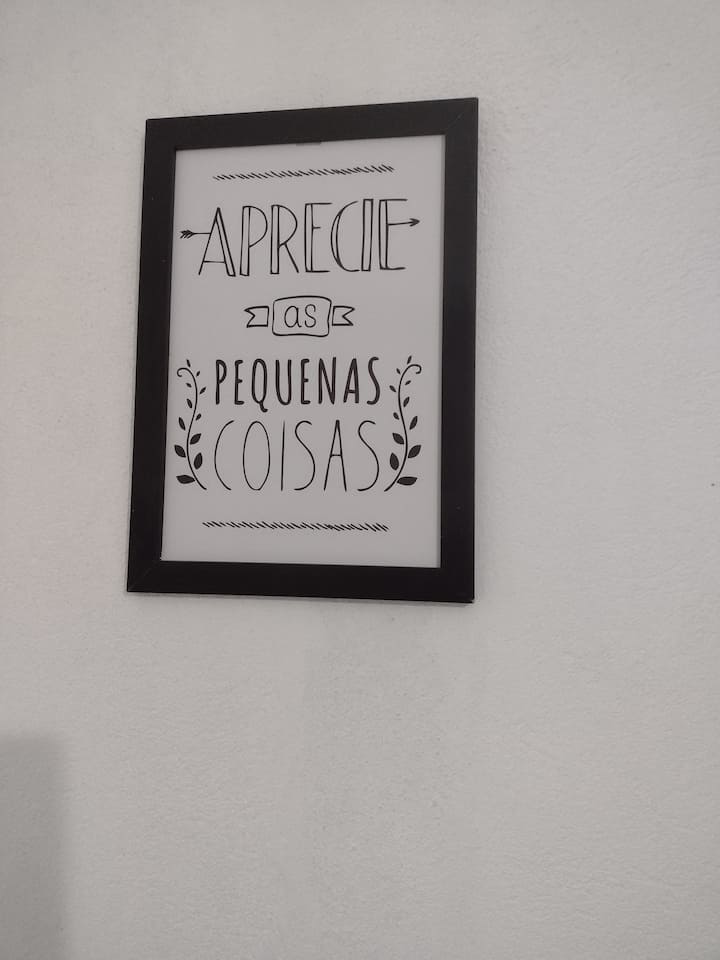 APRECIE
as
PEQUENAS
COISAS